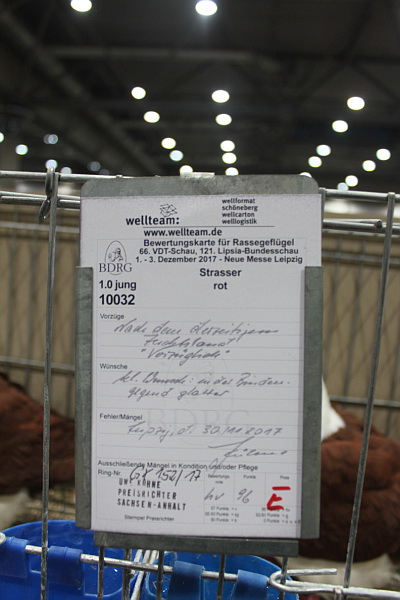 wellteam:
wellformat
schöneberg
wellcarton
welllogistik
www.wellteam.de
Bewertungskarte für Rassegeflügel
66. VDT-Schau, 121. Lipsia-Bundesschau
1. - 3. Dezember 2017 - Neue Messe Leipzig
BDRG
Strasser
rot
1.0 jung
10032
Vorzüge
Nach dem derzeitigen
Zuchtstand
"Vorzüglich"
Wünsche
gegend glatter
Fehler/Mängel
BDRG
Leipzig, d. 30.11.2017
Ausschließende Mängel in Kondition und/oder Pflege
Ring-Nr.
152/17
Bewertung
Punkte
Preis
hv 96 E
UWE KÜHNE
PREISRICHTER
SACHSEN-ANHALT
Stempel Preisrichter